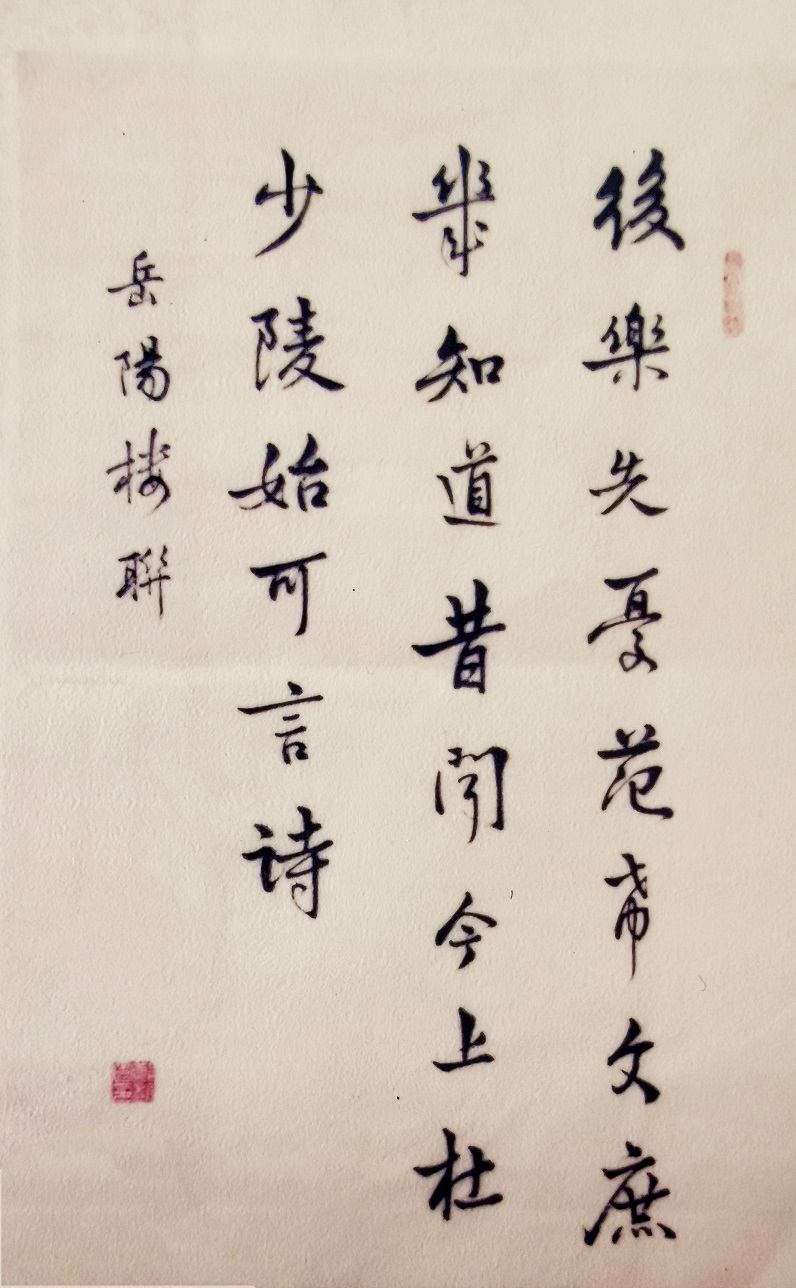 後樂先憂范希文庶
幾知道昔聞今上杜
少陵始可言詩
岳陽楼聯